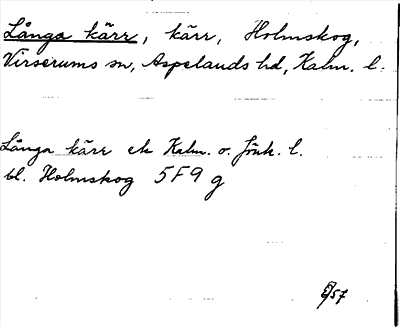 Långa kärr, kärr, Holmskog,
Virserums sn, Aspelands hd, Kalm. l.
Långa kärr ek Kalm. o. Jönk. l.
bl. Holmskog 5F9 g
/57